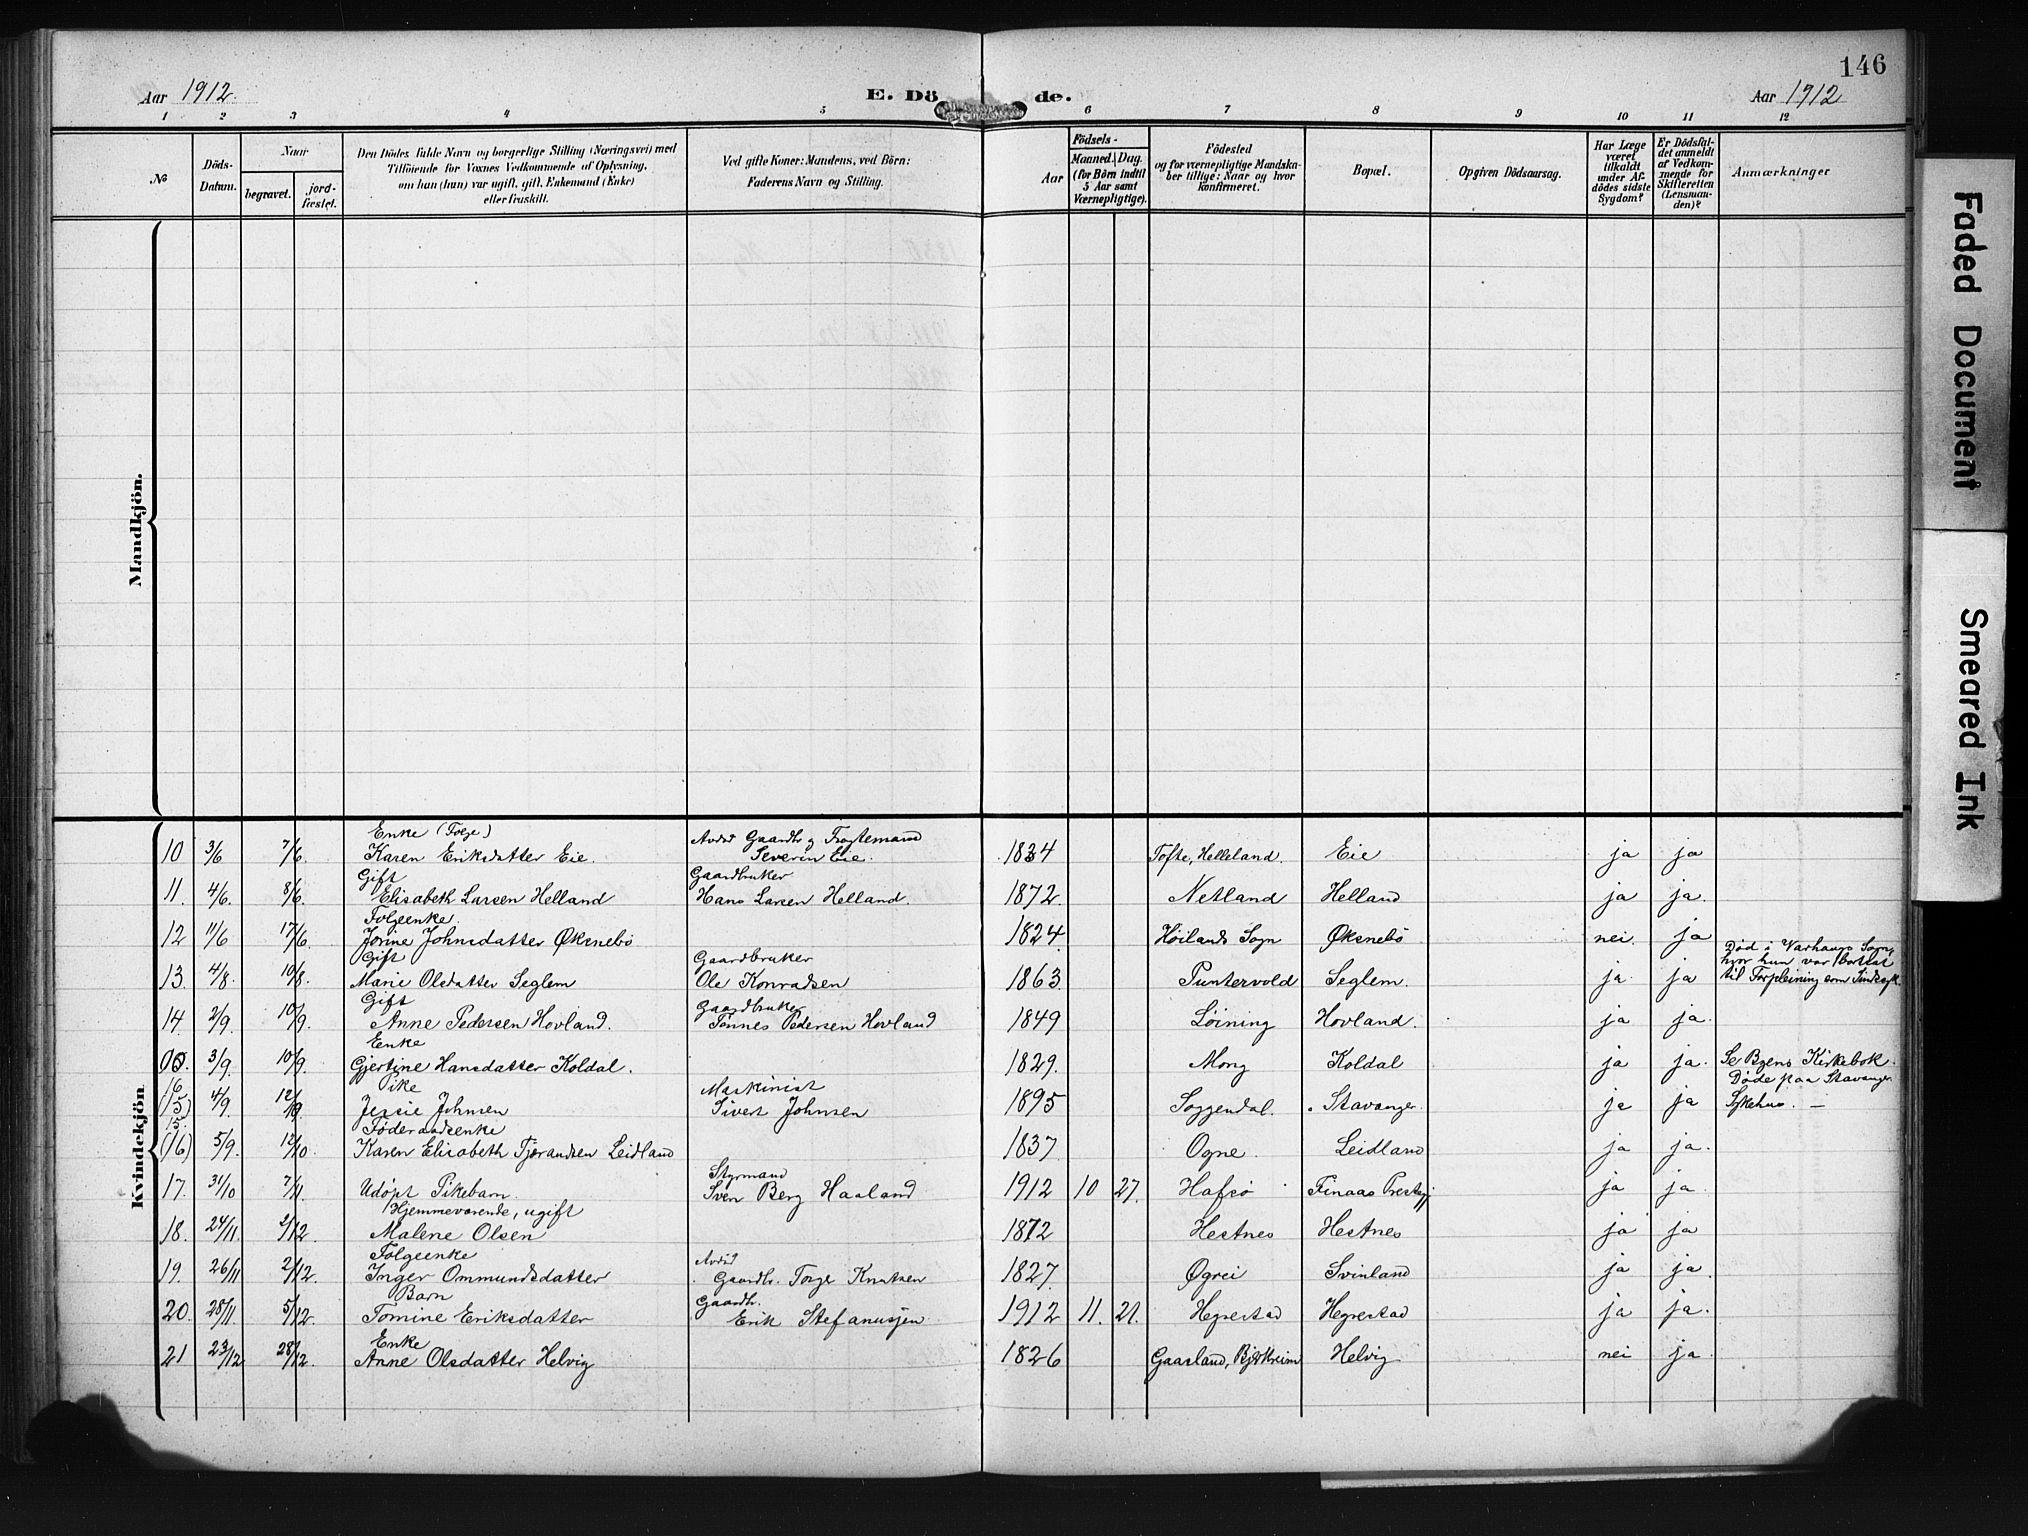 146
Aar 1912.
E. Döde.
Aar 1912
1 2 3 4 5 6 7 8 9 10 11 12
№
Döds-Datum.
Naar
begravet.
jord-fæstet.
Den Dödes fulde Navn og borgerlige Stilling (Næringsvei) med
Tilföiende for Voxnes Vedkommende af Oplysning,
om han (hun) var ugift, gift, Enkemand (Enke)
eller fraskilt.
Ved gifte Koner: Mandens, ved Börn:
Faderens Navn og Stilling.
Födsels-
Aar
Maaned. Dag.
(for Börn indtil
5 Aar samt
Værnepligtige).
Födested
og for værnepligtige Mandska-
ber tillige: Naar og hvor
konfirmeret.
Bopæl.
Opgiven Dödsaarsag.
Har Læge
været
tilkaldt
under Af-
dödes sidste
Sygdom?
Er Dödsfal-
det anmeldt
af Vedkom-
mende for
Skifteretten
(Lensman-
den)?
Anmærkninger
Mandkjön.
Kvindekjön
10 3/6 7/6. Enke (Følge) Karen Eriksdatter Eie. Avdød Gaardb. og Fragtemand Severin Eie. 1834 Tofte, Helleland. Eie ja ja
11. 4/6. 8/6. Gift Elisabeth Larsen Helland Gaardbruker Hans Larsen Helland. 1872. Netland Helland ja ja.
12 11/6 17/6. Følgeenke. Jorine Johnsdatter Øksnebø 1824. Høilands Sogn Øksnebø nei. ja
13. 4/8. 10/8. Gift Marie Olsdatter Seglem Gaardbruker Ole Konradsen 1863. Puntervold Seglem. ja ja Død i Varhaug Sogn, hvor hun var bortsat til Forpleining som Sindssyk.
14. 2/9. 10/9. Gift Anne Pedersen Hovland. Gaardbruker Tønnes Pedersen Hovland 1849 Løining Hovland. ja ja.
3/9. 10/9. Enke Gjertine Hansdatter Koldal. 1829. Mong Koldal ja ja.
16 (15) 4/9. 12/9 Pike Jessie Johnsen Maskinist Sivert Johnsen 1895 Soggendal. Stavanger. ja ja Se Byens Kirkebok. Døde paa Stavanger Sykehus. —
15. (16) 5/9. 12/10. Føderaadsenke Karen Elisabeth Tjørandsen Leidland 1837 Ogne. Leidland ja ja.
17. 31/10 7/11. Udøpt Pikebarn. Styrmand Sven Berg Haaland 1912 10 27. Hafsø Finaas Prestegj ja ja
18. 24/11. 2/12. Hjemmeværende, ugift Malene Olsen 1872 Hestnes Hestnes ja ja
19. 26/11 2/12. Følgeenke Inger Ommundsdatter Avdød Gaardb. Torge Knutsen 1827. Øgrei Svinland ja ja.
20. 28/11. 5/12. Barn Tomine Eriksdatter Gaardb. Erik Stefanussen 1912 11. 21. Hegrestad Hegrestad ja ja.
21 23/12 28/12. Enke Anne Olsdatter Helvig 1826 Gaasland, Bjerkreim Helvig nei ja.
Faded Document
Smeared Ink